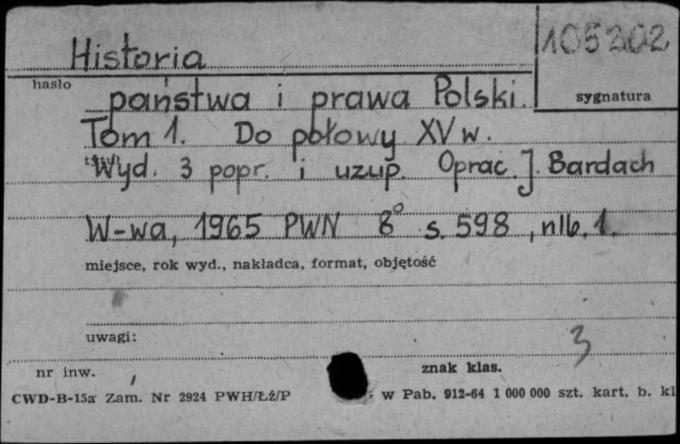 Historia
105202
hasło
państwa i prawa Polski.
sygnatura
Tom 1. Do połowy XV w.
Wyd. 3 popr. i uzup. Oprac. J. Bardach
W-wa, 1965 PWN 8° s. 598, nlb. 1.
miejsce, rok wyd., nakładca, format, objętość
uwagi:
3
nr inw.
znak klas.
CWD-B-15a Zam. Nr 2924 PWH/Łź/P w Pab. 912-64 1 000 000 szt. kart. b. kl